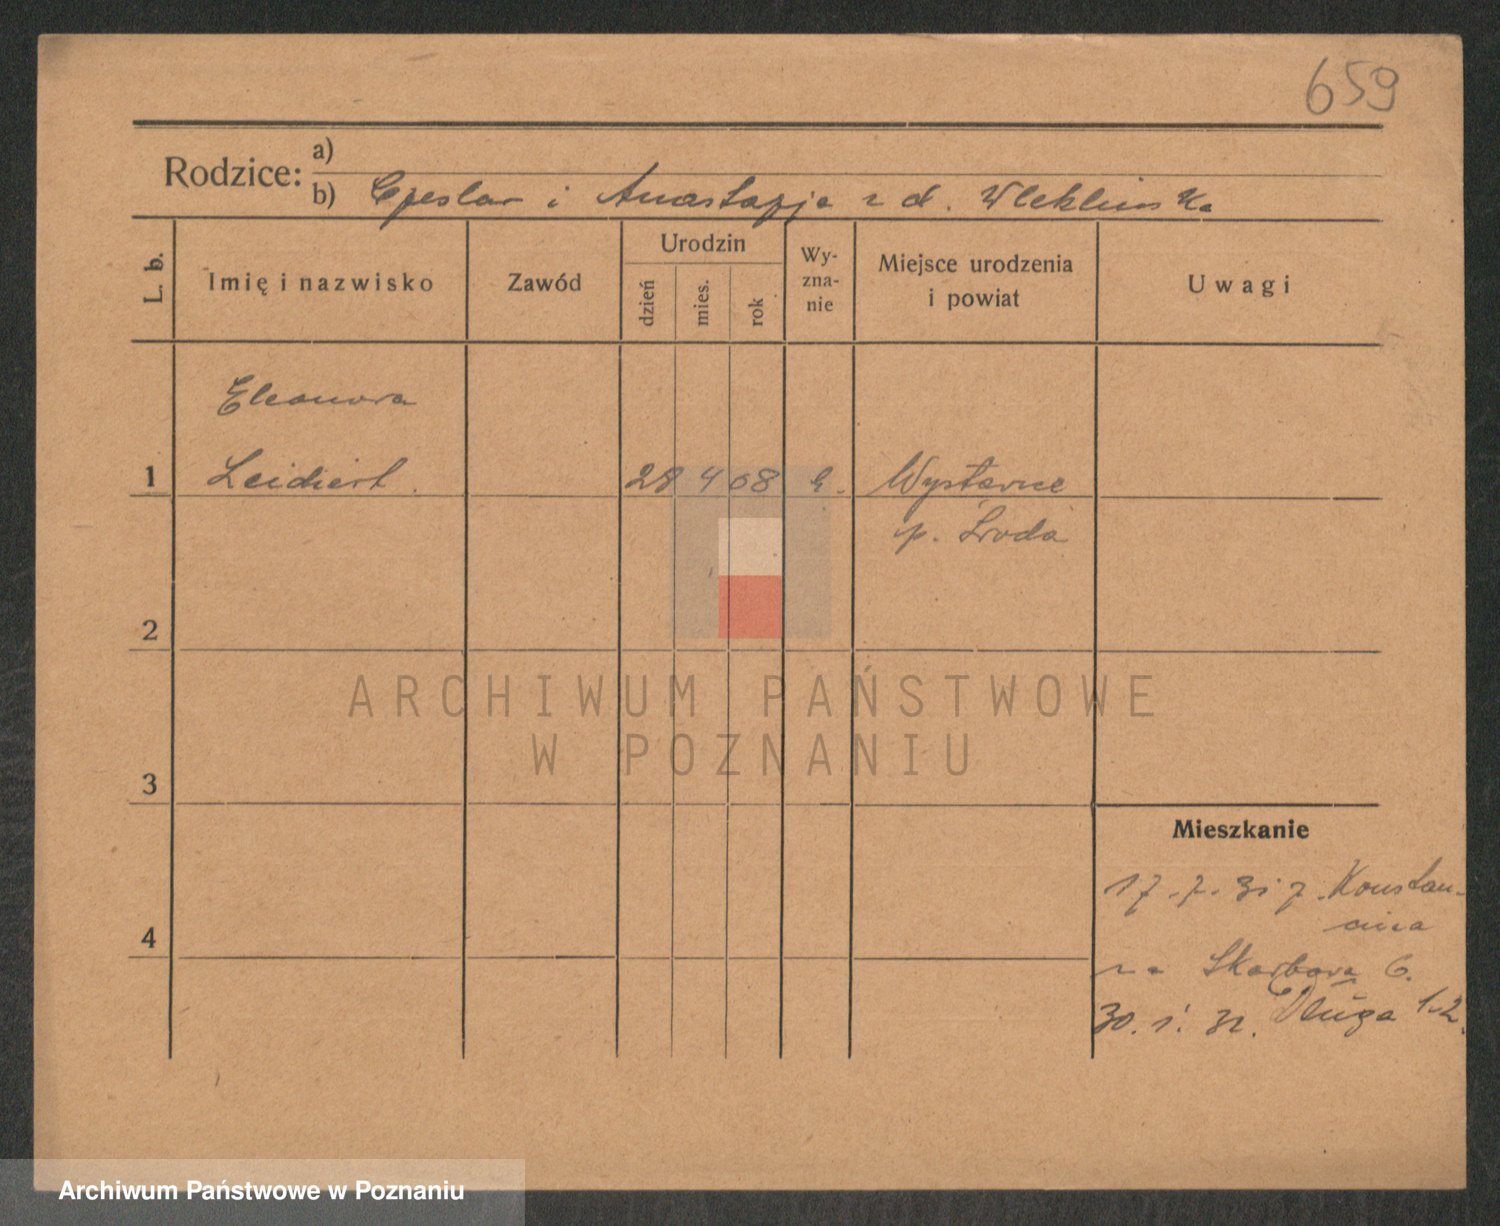 659
Rodzice: a)
b) Czesław i Anastazja z d. Wleklińska
L. b.
Imię i nazwisko
Zawód
Urodzin
dzień
mies.
rok
Wy-
zna-
nie
Miejsce urodzenia
i powiat
Uwagi
Eleonora
1 Leichert. 28 4 08 Wysławice
p. Środa
2
ARCHIWUM PAŃSTWOWE
W POZNANIU
3
Mieszkanie
17.7.31 z Konstan-
cina
4
na Skarbowa 6.
30. 1. 32. Długa
Archiwum Państwowe w Poznaniu